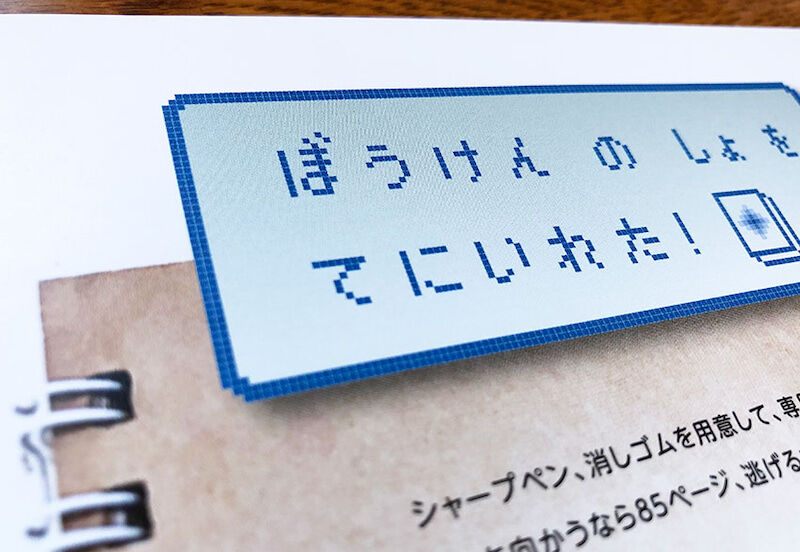 ぼうけん の しょを
てにいれた!
シャープペン、消しゴムを用意して、専
向かうなら85ページ、逃げる